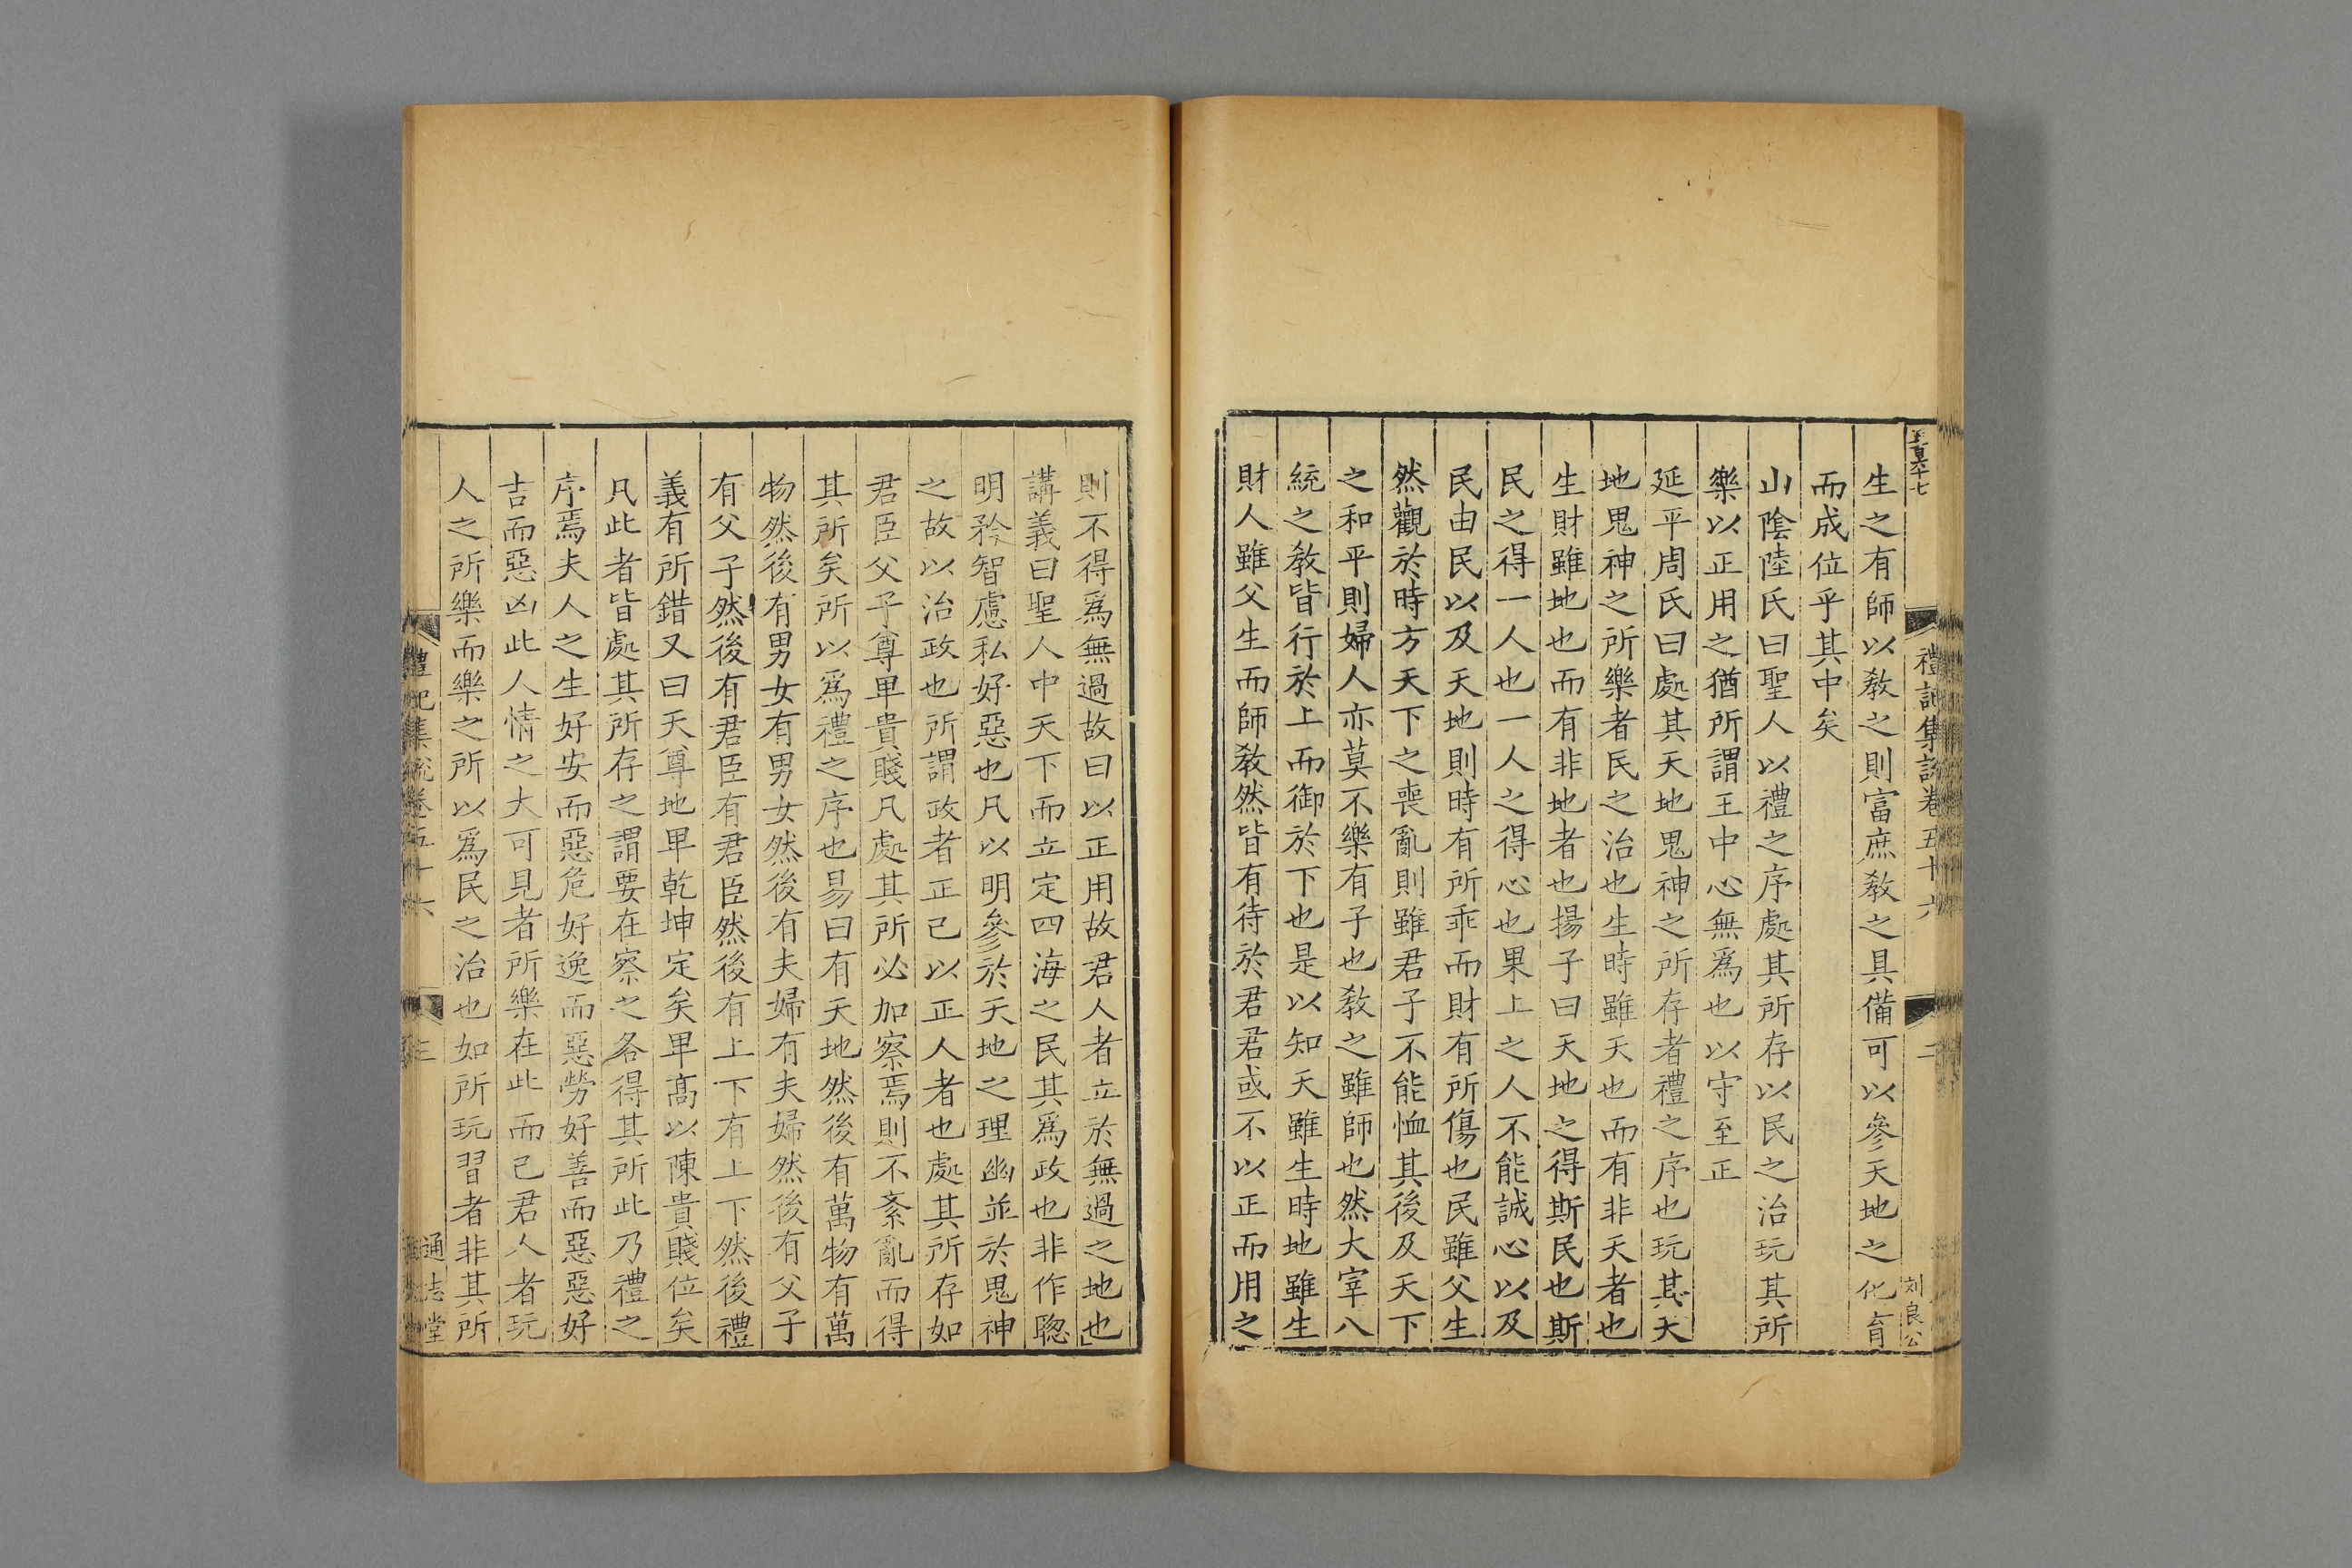 禮記集說卷五十六
二
刘良公
生之有師以敎之則富庶敎之具備可以參天地之化育
而成位乎其中矣
山陰陸氏曰聖人以禮之序處其所存以民之治玩其所
樂以正用之猶所謂王中心無爲也以守至正
延平周氏曰處其天地鬼神之所存者禮之序也玩其天
地鬼神之所樂者民之治也生時雖天也而有非天者也
生財雖地也而有非地者也揚子曰天地之得斯民也斯
民之得一人也一人之得心也果上之人不能誠心以及
民由民以及天地則時有所乖而財有所傷也民雖父生
然觀於時方天下之喪亂則雖君子不能恤其後及天下
之和平則婦人亦莫不樂有子也敎之雖師也然大宰八
統之敎皆行於上而御於下也是以知天雖生時地雖生
財人雖父生而師敎然皆有待於君君或不以正而用之
則不得爲無過故曰以正用故君人者立於無過之地也
講義曰聖人中天下而立定四海之民其爲政也非作聦
明矜智慮私好惡也凡以明參於天地之理幽並於鬼神
之故以治政也所謂政者正己以正人者也處其所存如
君臣父子尊卑貴賤凡處其所必加察焉則不紊亂而得
其所矣所以爲禮之序也易曰有天地然後有萬物有萬
物然後有男女有男女然後有夫婦有夫婦然後有父子
有父子然後有君臣有君臣然後有上下有上下然後禮
義有所錯又曰天尊地卑乾坤定矣卑高以陳貴賤位矣
凡此者皆處其所存之謂要在察之各得其所此乃禮之
序焉夫人之生好安而惡危好逸而惡勞好善而惡惡好
吉而惡凶此人情之大可見者所樂在此而已君人者玩
人之所樂而樂之所以爲民之治也如所玩習者非其所
禮記集說卷五十六
三
通志堂